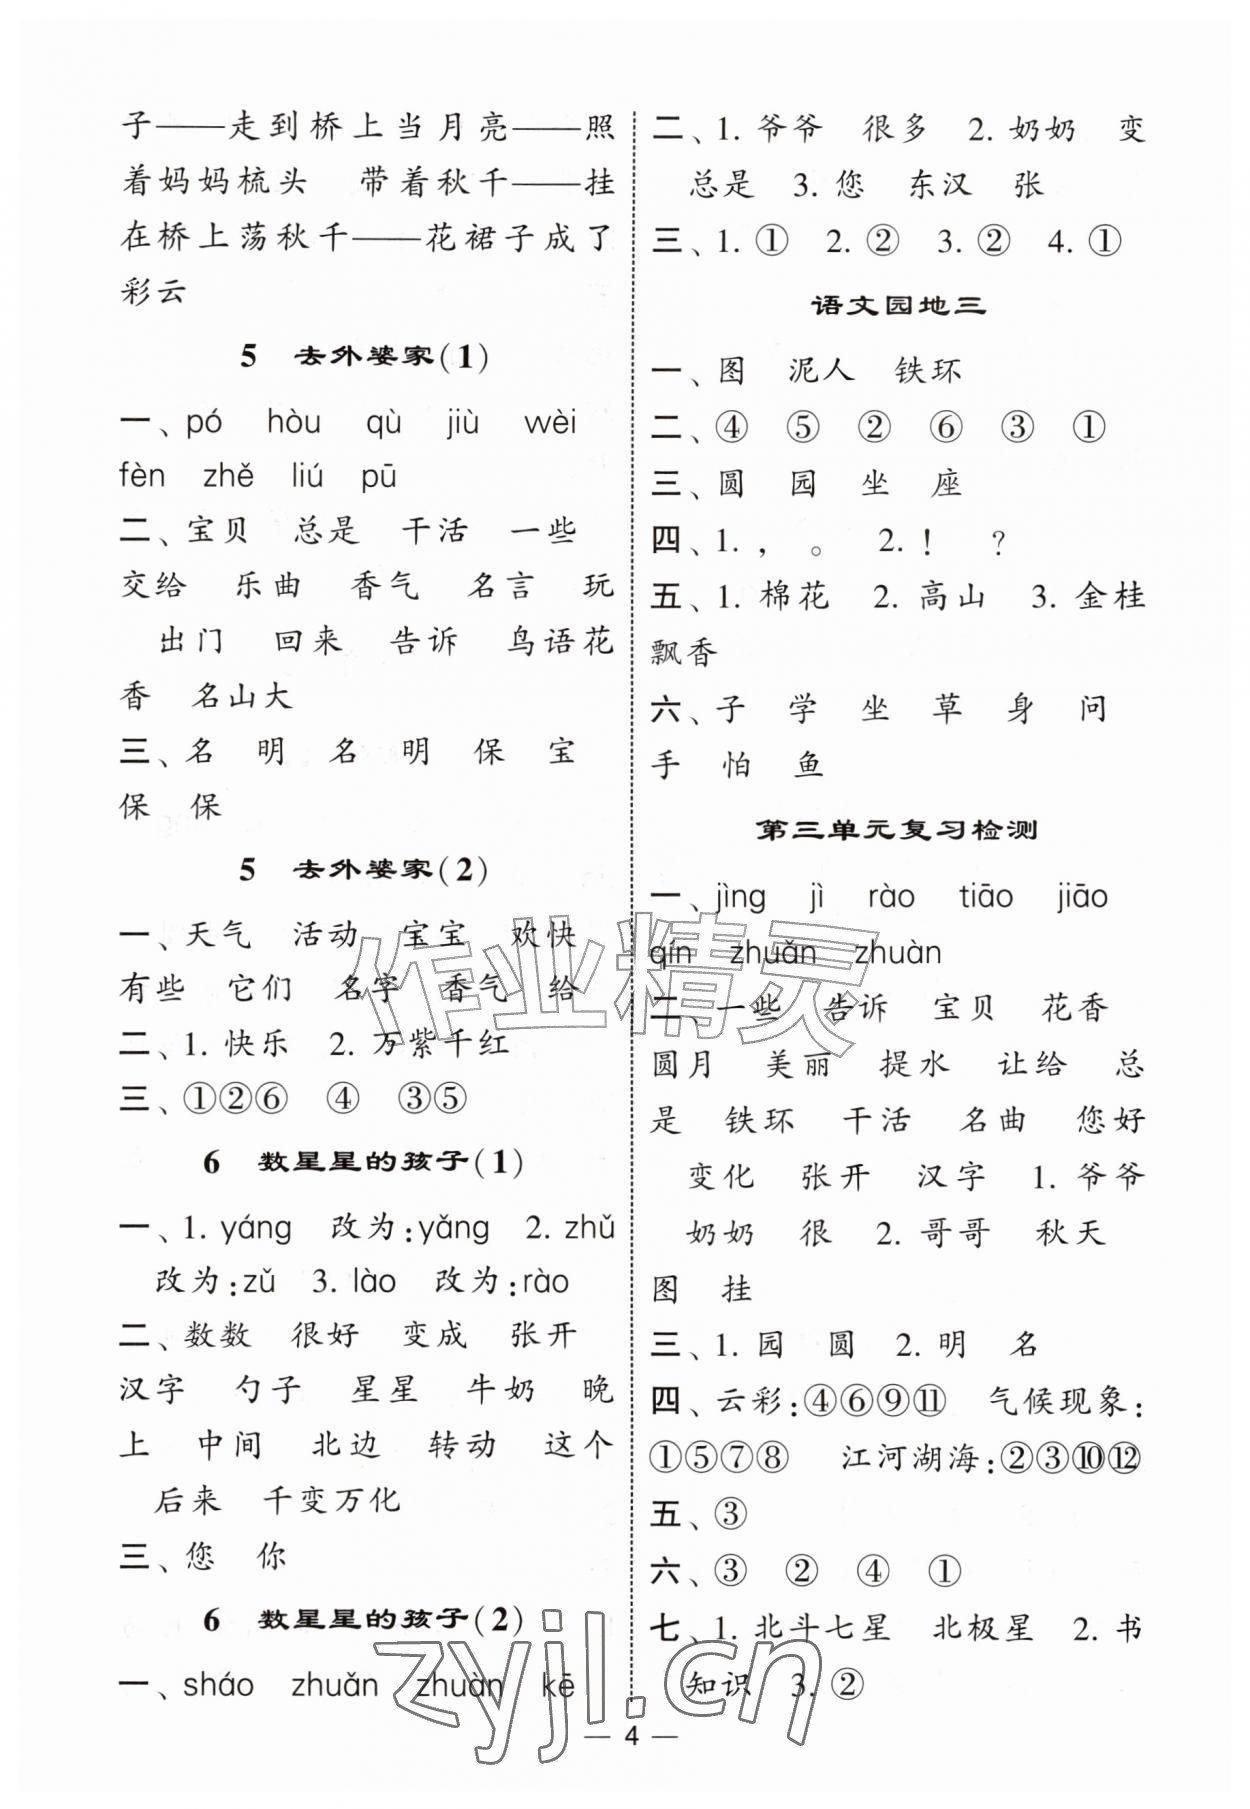 子——走到桥上当月亮——照
着妈妈梳头 带着秋千——挂
在桥上荡秋千——花裙子成了
彩云
5 去外婆家(1)
一、pó hòu qù jiù wèi
fèn zhě liú pū
二、宝贝 总是 干活 一些
交给 乐曲 香气 名言 玩
出门 回来 告诉 鸟语花
香 名山大
三、名 明 名 明 保 宝
保 保
5 去外婆家(2)
一、天气 活动 宝宝 欢快
有些 它们 名字 香气 给
二、1. 快乐 2. 万紫千红
三、①②⑥ ④ ③⑤
6 数星星的孩子(1)
一、1. yáng 改为:yǎng 2. zhǔ
改为:zǔ 3. lào 改为:rào
二、数数 很好 变成 张开
汉字 勺子 星星 牛奶 晚
上 中间 北边 转动 这个
后来 千变万化
三、您 你
6 数星星的孩子(2)
一、sháo zhuǎn zhuàn kē
二、1. 爷爷 很多 2. 奶奶 变
总是 3. 您 东汉 张
三、1. ① 2. ② 3. ② 4. ①
语文园地三
一、图 泥人 铁环
二、④ ⑤ ② ⑥ ③ ①
三、圆 园 坐 座
四、1. , 。 2. ! ?
五、1. 棉花 2. 高山 3. 金桂
飘香
六、子 学 坐 草 身 问
手 怕 鱼
第三单元复习检测
一、jìng jì rào tiāo jiāo
qín zhuǎn zhuàn
二、一些 告诉 宝贝 花香
圆月 美丽 提水 让给 总
是 铁环 干活 名曲 您好
变化 张开 汉字 1. 爷爷
奶奶 很 2. 哥哥 秋天
图 挂
三、1. 园 圆 2. 明 名
四、云彩:④⑥⑨⑪ 气候现象:
①⑤⑦⑧ 江河湖海:②③⑩⑫
五、③
六、③ ② ④ ①
七、1. 北斗七星 北极星 2. 书
知识 3. ②
— 4 —
作业精灵
zyjl.cn